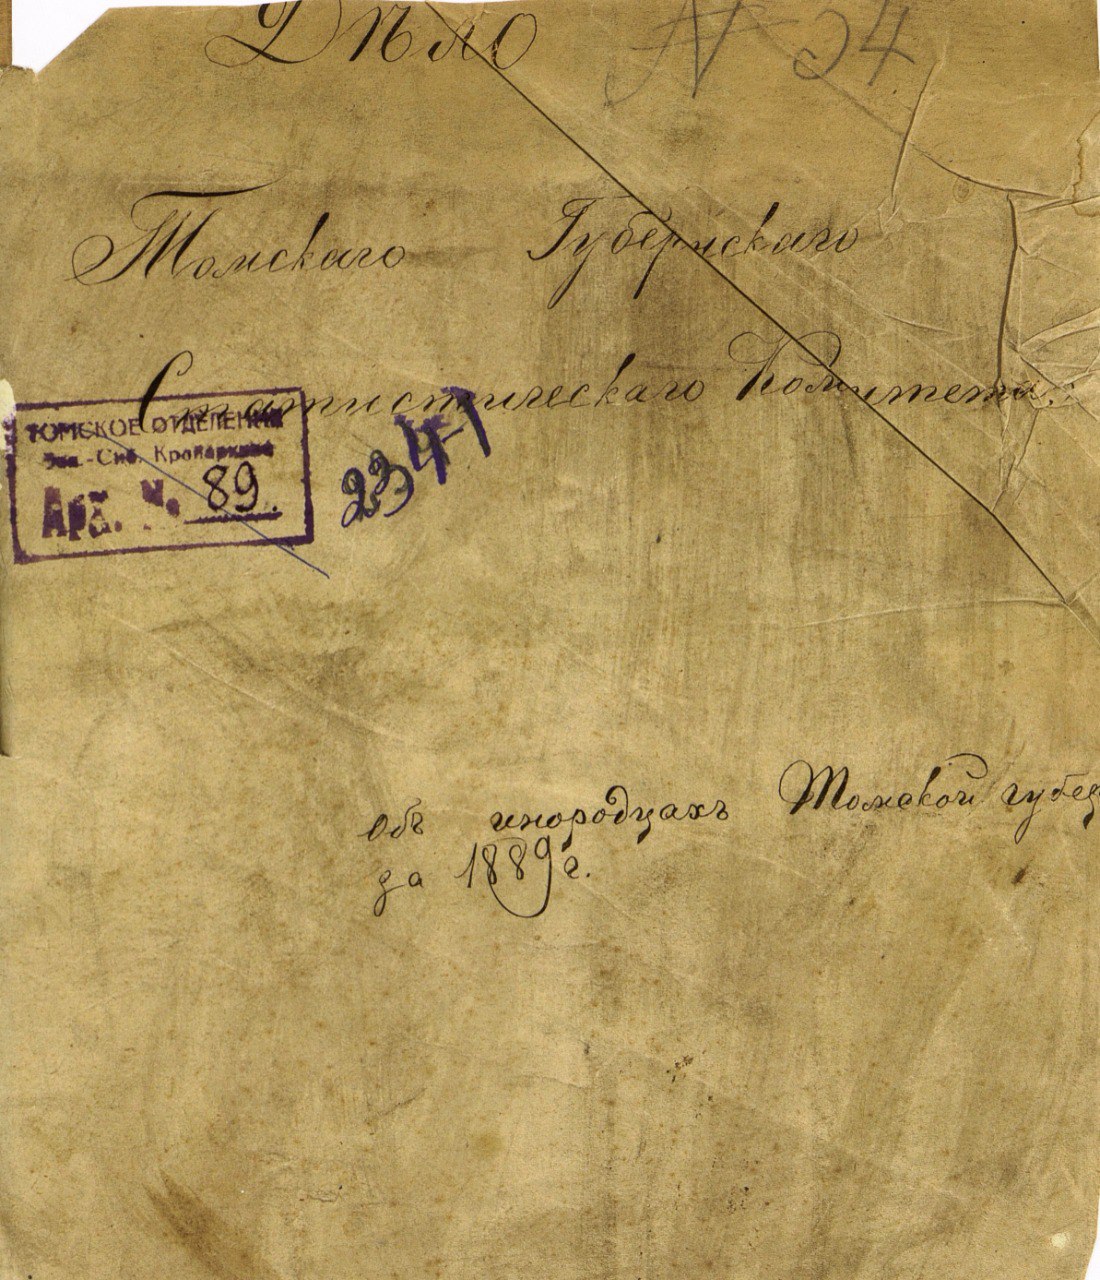 Дѣло № 34
Томскаго Губернскаго
Статистическаго Комитета.
ТОМСКОЕ ОТДЕЛЕНИЕ
Зап.-Сиб. Крайархива
Арх. №. 89.
234-1
объ инородцахъ Томской губер
за 1889 г.